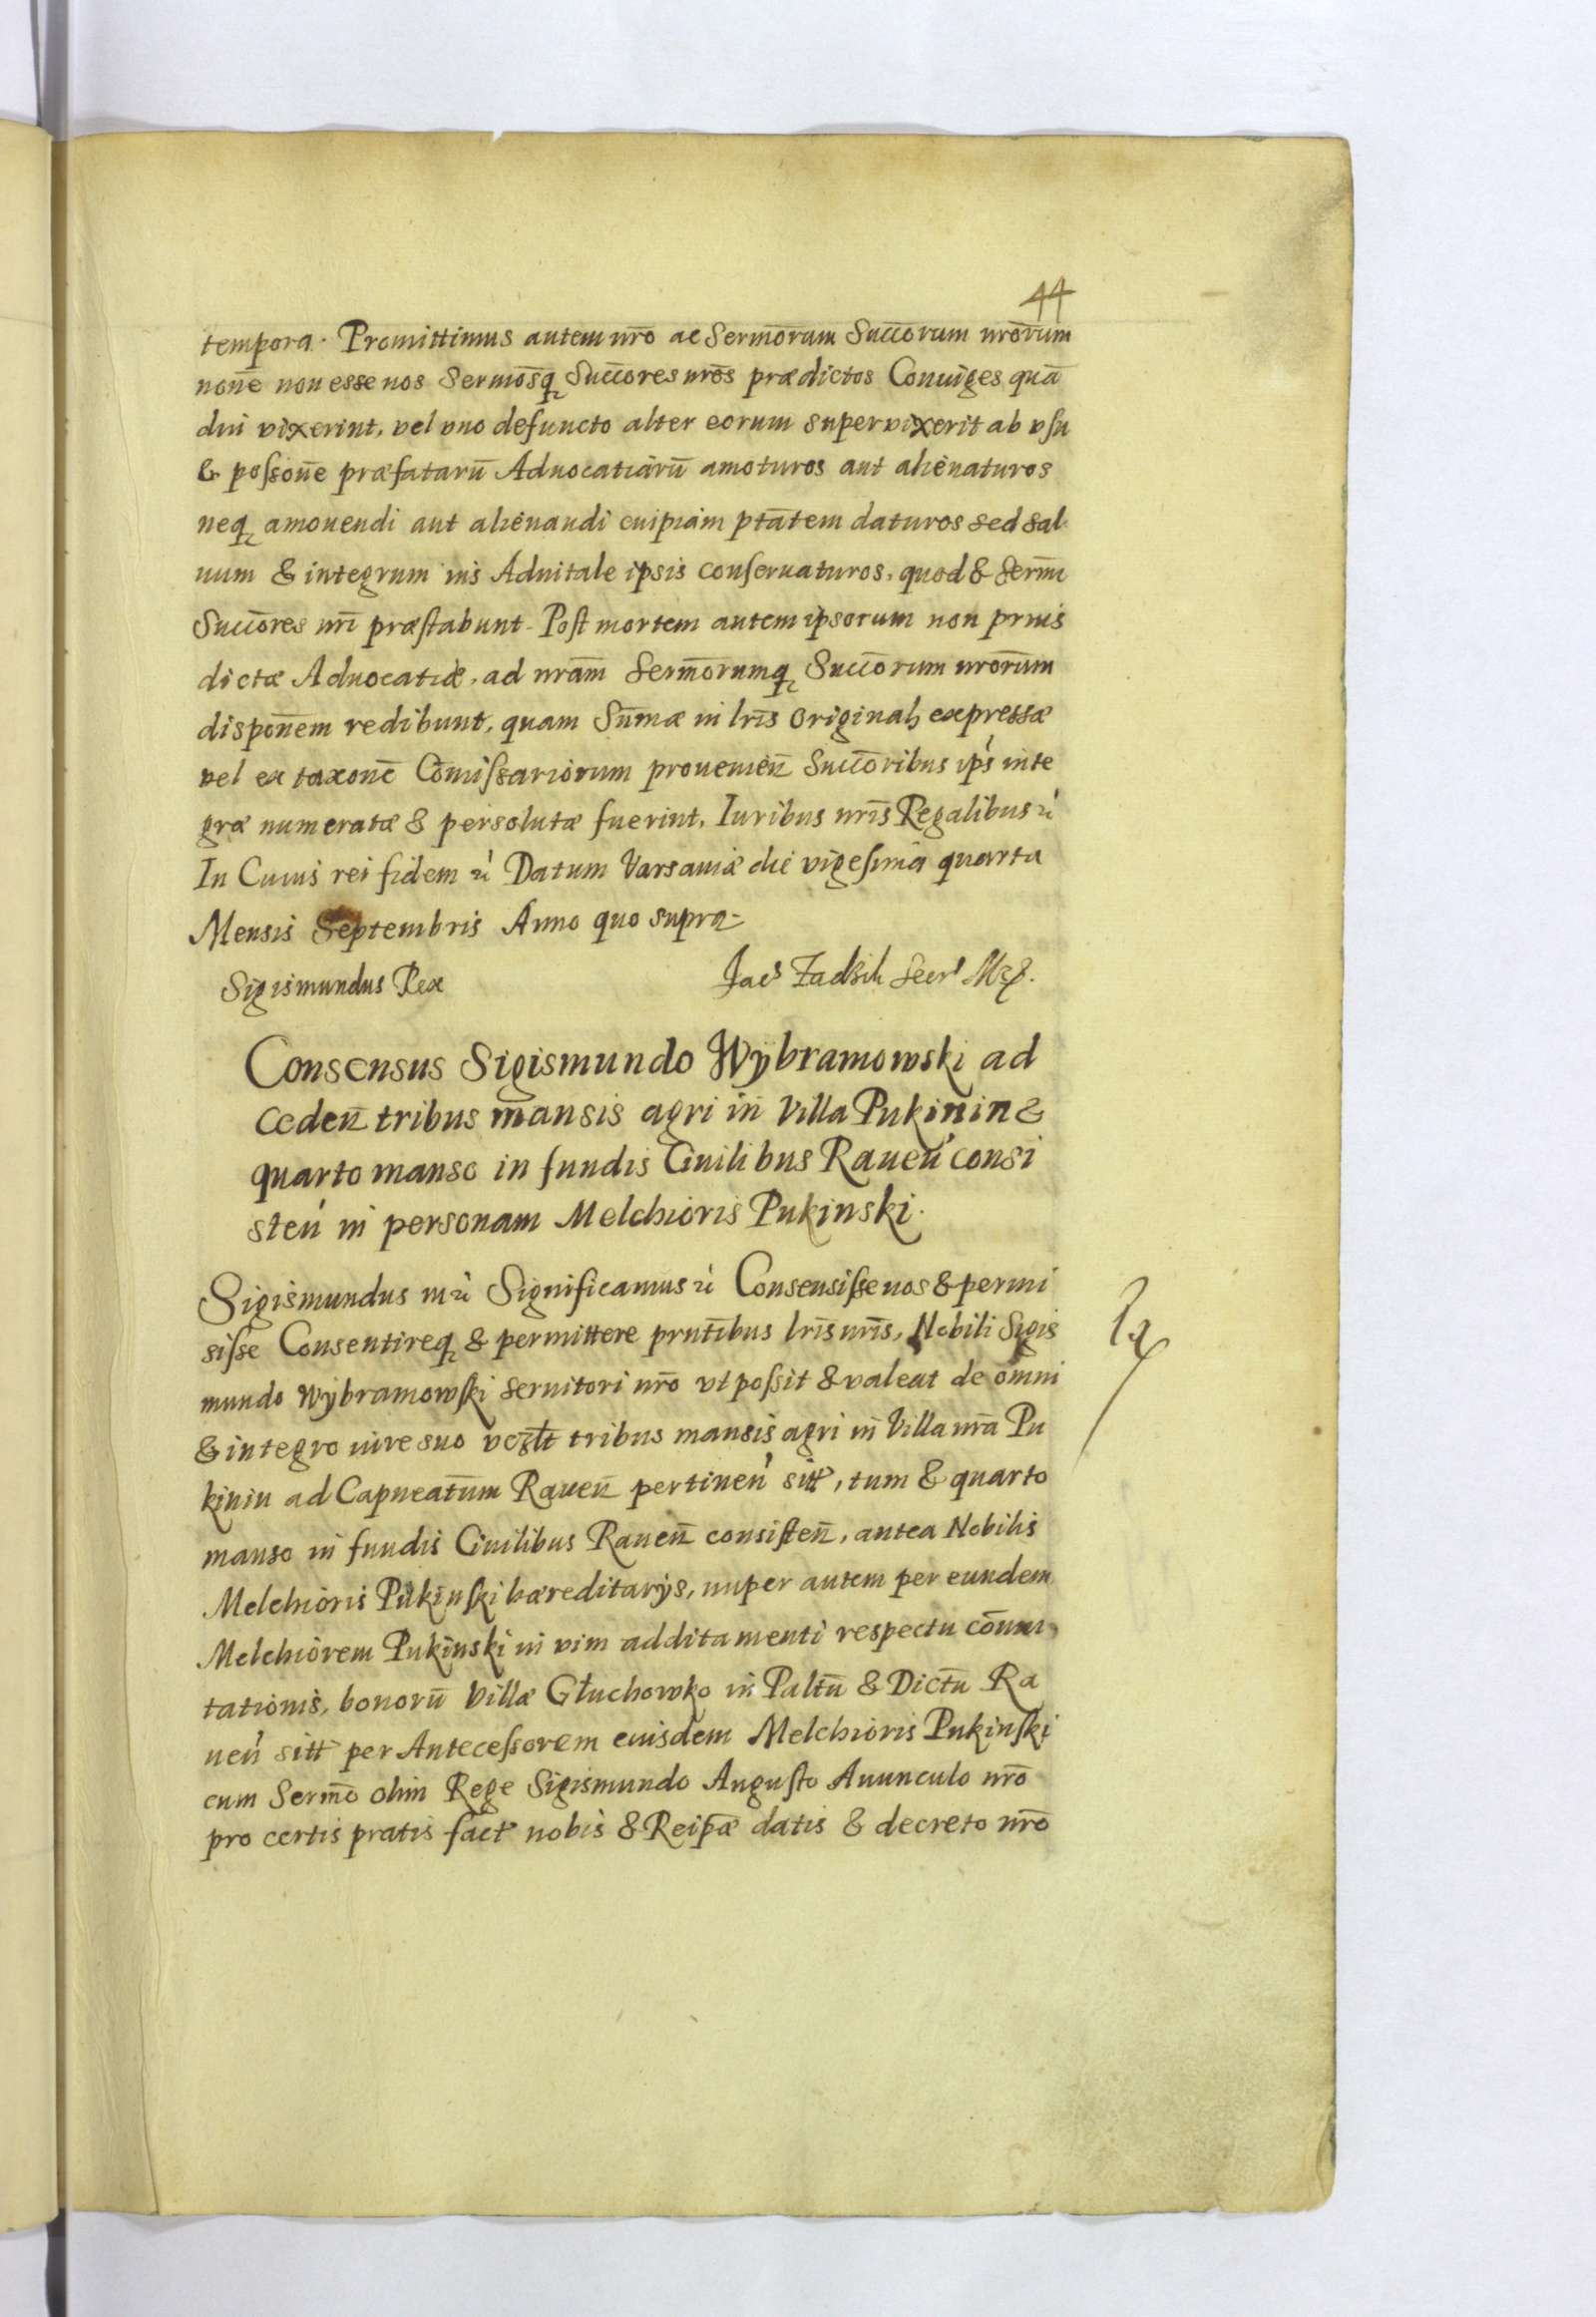 44
tempora. Promittimus autem nr̄o ac Serm̄orum Succ̄orum nrōrum
non̄e non esse nos Serm̄osq Succ̄ores nrōs prædictos Coniuges quā
diu vixerint, vel vno defuncto alter eorum supervixerit ab vsu
& possōne præfatarū Aduocatiarū amoturos aut alienaturos
neq amouendi aut alienandi cuipiam ptātem daturos sed sal
uum & integrum ius Aduitale ipsis conseruaturos, quod & Serm̄i
Succ̄ores nr̄i præstabunt. Post mortem autem ipsorum non prius
dictæ Aduocatiæ, ad nrām Serm̄orumq Succ̄orum nrōrum
dispon̄em redibunt, quam Sum̄æ in lrīs Originalȷ expressæ
vel ex taxonē Com̄issariorum prouenien̄ Succ̄oribus ips' inte
græ numeratæ & persolutæ fuerint, Iuribus nrīs Regalibus r̓c
In Cuius rei fidem r̓c Datum Varsauiæ die vigesima quarta
Mensis Septembris Anno quo supra.
Sigismundus Rex Jac' Zadzik Secr'
Consensus Sigismundo Wÿbramowski ad
ceden̄ tribus mansis agri in Villa Pukinin &
quarto manso in fundis Ciuilibus Rauen' consi
sten' in personam Melchioris Pukinski.
Sigismundus IIIr̓c Significamus r̓c Consensisse nos & permi
sisse Consentireq & permittere prntībus lrīs nrīs, Nobili Sigis
mundo Wÿbramowski seruitori nr̄o vt possit & valeat de omni
& integro iure suo tribus mansis agri in Villa nrā Pu
kinin ad Capneatūm Rauen̄ pertinen' sitt, tum & quarto
manso in fundis Ciuilibus Rauen̄ consisten̄, antea Nobilis
Melchioris Pukinski hæreditarÿs, nuper autem per eundem
Melchiorem Pukinski in vim additamenti respectu com̄u
tationis, bonorū Villæ Głuchowko in Paltū & Dictū Ra
uen' sitt per Antecessorem eiusdem Melchioris Pukinski
cum Serm̄o olim Rege Sigismundo Augusto Auunculo nrō
pro certis pratis fact nobis & Reip̄æ datis & decreto nrō